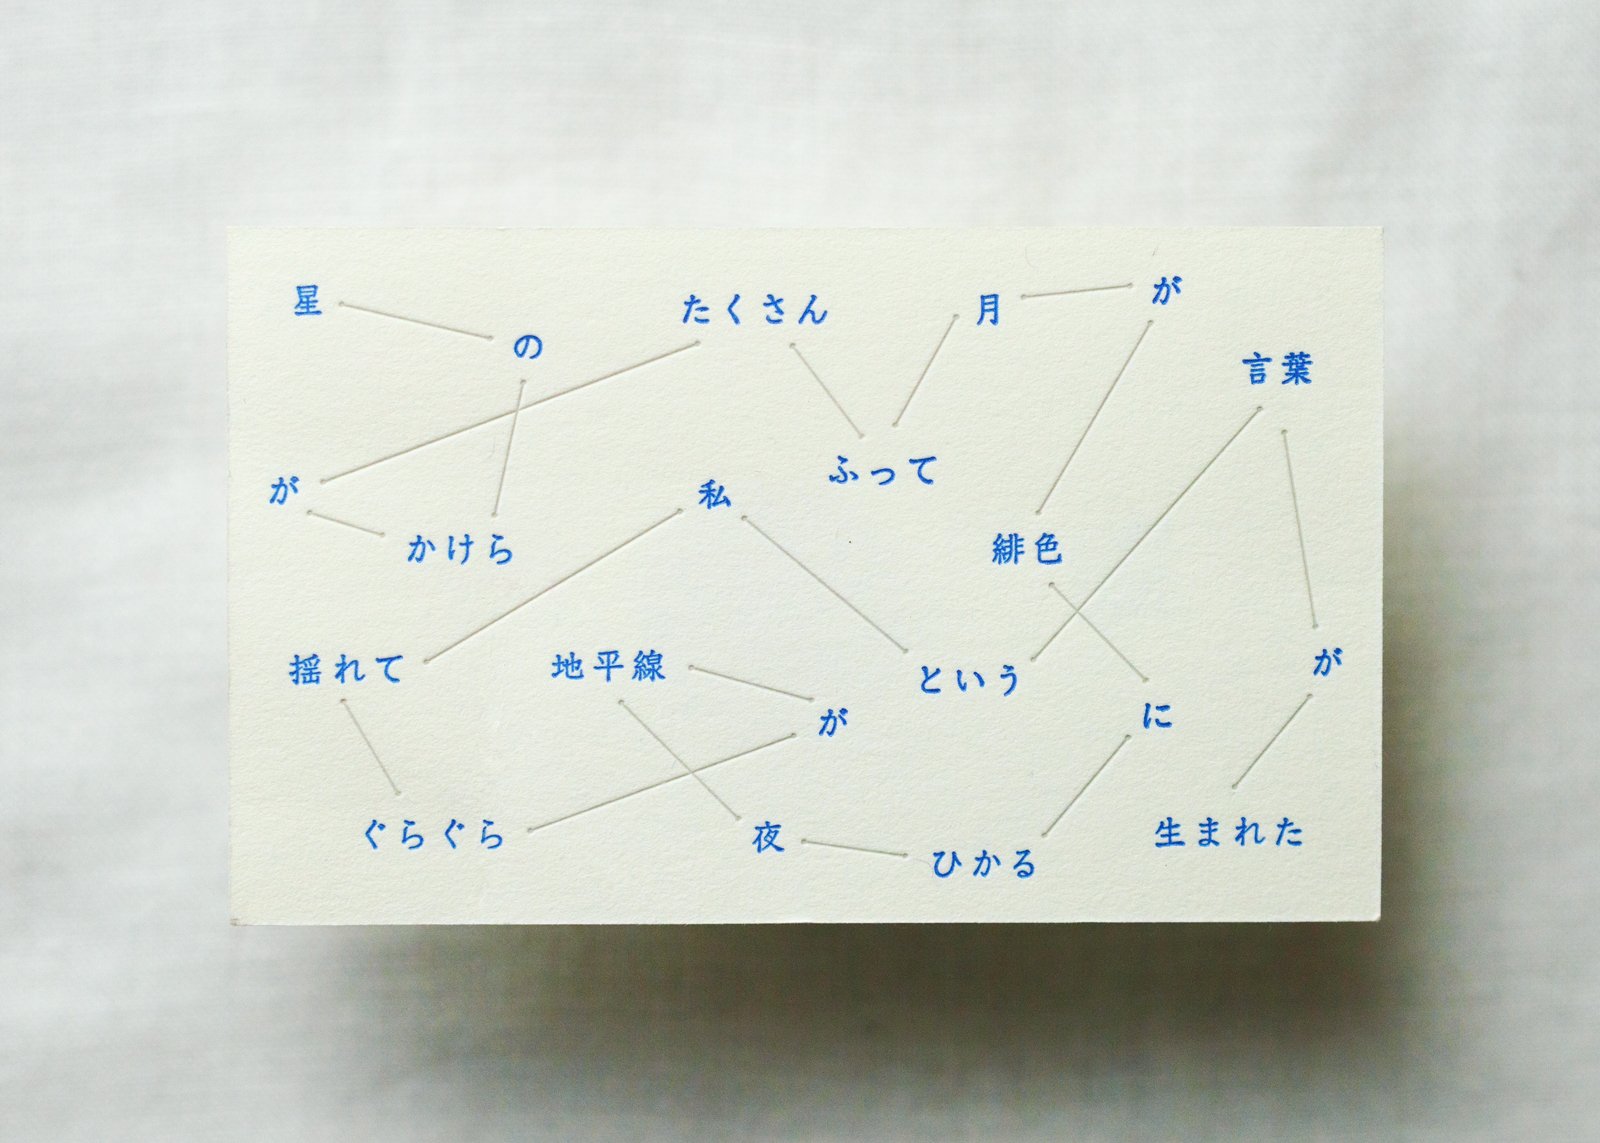 星
の
かけら
が
たくさん
ふって
月
が
緋色
に
ひかる
夜
地平線
が
ぐらぐら
揺れて
私
という
言葉
が
生まれた